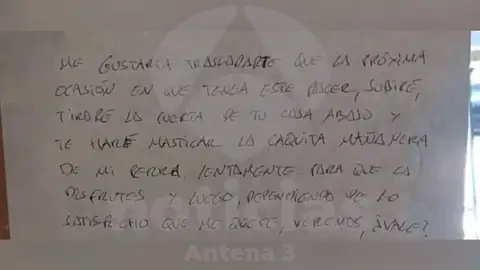 ME GUSTARÍA TRASLADARTE QUE LA PRÓXIMA
OCASIÓN EN QUE TENGA ESTE PLACER, SUBIRÉ,
TIRARÉ LA PUERTA DE TU CASA ABAJO Y
TE HARÉ MASTICAR LA CAQUITA MAÑANERA
DE MI PERRA. LENTAMENTE. PARA QUE LA
DISFRUTES Y LUEGO, DEPENDIENDO DE LO
SATISFECHO QUE ME QUEDE, VEREMOS, ¿VALE?
Antena 3
Antena 3